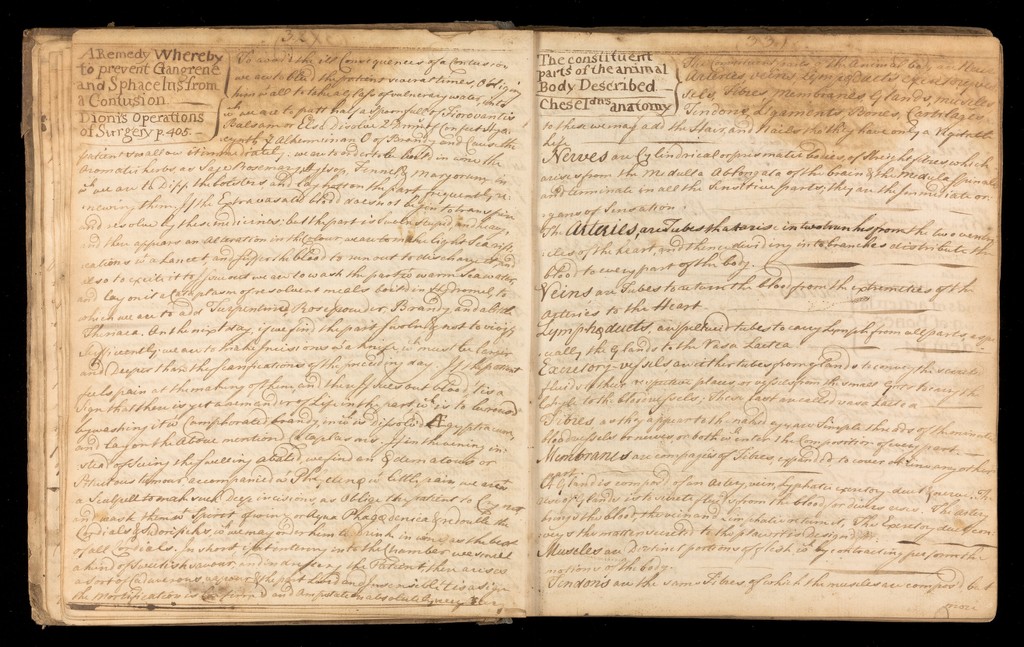 32
A Remedy Whereby
to prevent Gangrene
and Sphacelus from
a Contusion
Dionis Operations
of Surgery p. 405.
To avoid the ill Consequences of a Contusion
we are to bleed the patient several times, Obliging
him withall to take a Glass of vulnerary water, unto
wch we are to put half a Spoonful of Fioravantis
Balsam or Else Dissolve
of Brandy and Cause the
patient to swallow it immediately. we are to order to be boil'd in wine the
Aromatic herbs as Sage Rosemary Hyssop, Fennel & Marjorum in
wch we are to Dipp the bolsters and lay them on the part frequently re
newing them, If the Extravasated blood does not begin to transpire
and resolve by these medicines; but the part is swell'd and heavy,
and there appears an alteration in the Colour we are to make slight Scarifi
cations wth a Lancet and suffer the blood to run out to discharge it and
also to excite it to Issue out we are to wash the part wth warm Sea water,
and lay on it a Cataplasm of resolvent meals boil'd in Hydromel, to
which we are to add Turpentine, Rose powder, Brandy and a little
Theriaca. On the next day, if we find the part swoln & not to vivify
sufficiently, we are to make Incisions wth a knife, wch must be larger
and Deeper than the scarifications of the preceeding day If the patient
feels pain at the making of them, and there Issues out blood, tis a
sign that there is yet a remainder of Life in the part wch is to be revived
by washing it wth Camphorated brandy, in wch is dissolv'd Ægyptiacum,
and lay on the above mention'd Cataplasms. If in the evening in-
stead of seeing the swelling abated, we find an Œdematous or
tumour, accompanied wth Phlyctenæ & little pain, we are to
a Scalpell to make such Deep incisions, as Oblige the patient to Cry out
and wash them wth Spirit of wine, or Aqua Phagedenica & redouble the
Cordials & Sudorificks, wch we may order him to Drink in wine as the best
of all Cordials. In short if at entering into the Chamber we smell
a kind of Sweetish savour, and in dressing the Patient there arises
a sort of Cadaverous vapour & the part Livid and Insensible it is a sign
the mortification is Confirm'd and Amputation absolutely necessary
33
The constituent
parts of the animal
Body Described
Cheseldens anatomy
The constituent parts of the Animal body are Nerves
Arteries, veins, Lymphæducts, Excretory ves
sels, Fibres Membranes Glands, muscles
Tendons, Ligaments, Bones, Cartilages
to these we may add the Hair, and Nails tho they have only a Vegetable
life.
Nerves are Cylindrical or prismatic bodies of Streight fibres which
arise from the Medulla Oblongata of the brain & the Medula Spinalis
and terminate in all the Sensitive parts, they are the Immediate or
gans of Sensation.
The Arteries, are Tubes that arise in two trunks from the two ventri
cles of the heart, and thence dividing into branches distribute the
blood to every part of the body.
Veins are Tubes to return the blood from the extremities of the
Arteries to the Heart
Lymphæducts, are pellucid tubes to carry Lymph from all parts, espe
cially the Glands to the Vasa Lactea
Excretory vessels are either tubes from glands to convey the secreted
fluids to their respective places or vessels from the small guts to carry the
Chyle to the blood vessels, These last are called vasa Lactea
Fibres as they appear to the naked eye are Simple threds of the minutest
blood vessels or nerves, or both wch enter the Composition of every part.
Membranes are compages of Fibres, expanded to cover or line any other
part.
A Gland is compos'd of an Artery, vein, lymphatic excretory duct & nerve. The
use of Glands is to secrete fluids from the blood for divers uses. The artery
brings the blood, the vein and lymphatic return it, The Excretory duct con
veys the matter secreted to the place it is design'd
Muscles are Distinct portions of flesh wch by contracting perform the
motions of the body.
Tendons are the same Fibres of which the muscles are compos'd but
more